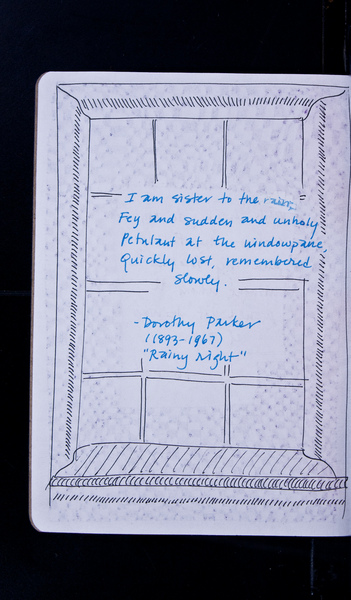 I am sister to the rain;
Fey and sudden and unholy,
Petulant at the windowpane,
Quickly lost, remembered
slowly.
- Dorothy Parker
(1893-1967)
"Rainy night"